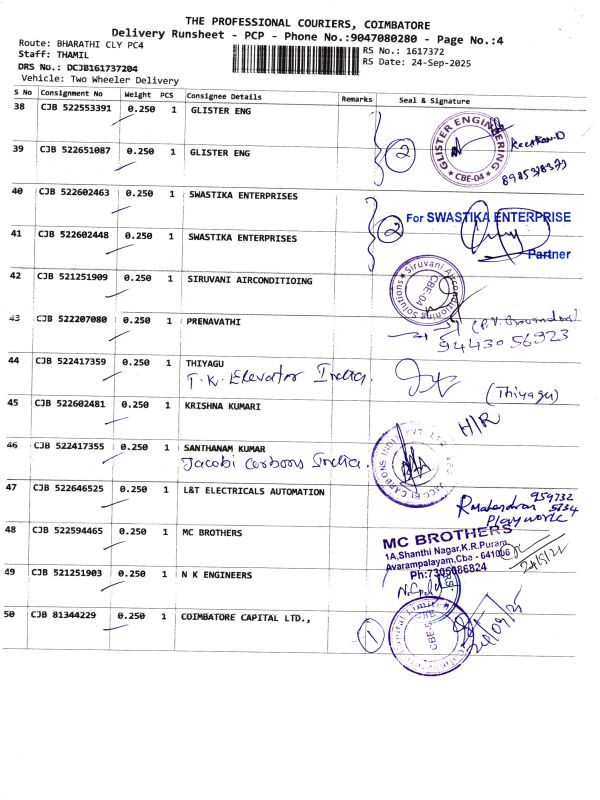 THE PROFESSIONAL COURIERS, COIMBATORE
Delivery Runsheet - PCP - Phone No.:9047080280 - Page No.:4
Route: BHARATHI CLY PC4
RS No.: 1617372
Staff: THAMIL
RS Date: 24-Sep-2025
DRS No.: DCJB161737204
Vehicle: Two Wheeler Delivery
S No Consignment No Weight PCS Consignee Details Remarks Seal & Signature
38 CJB 522553391 0.250 1 GLISTER ENG
GLISTER ENGINEERING
* CBE-04 *
39 CJB 522651087 0.250 1 GLISTER ENG 2
40 CJB 522602463 0.250 1 SWASTIKA ENTERPRISES
For SWASTIKA ENTERPRISE
2
41 CJB 522602448 0.250 1 SWASTIKA ENTERPRISES
Partner
42 CJB 521251909 0.250 1 SIRUVANI AIRCONDITIOING
Siruvani Airconditioning Solutions
CBE-04
43 CJB 522207080 0.250 1 PRENAVATHI
9443056923
44 CJB 522417359 0.250 1 THIYAGU
T.K. Elevator India.
(Thiyagu)
45 CJB 522602481 0.250 1 KRISHNA KUMARI
H/R
46 CJB 522417355 0.250 1 SANTHANAM KUMAR
Jacobi Carbons India.
47 CJB 522646525 0.250 1 L&T ELECTRICALS AUTOMATION
959732
5234
48 CJB 522594465 0.250 1 MC BROTHERS
MC BROTHERS
1A,Shanthi Nagar,K.R.Puram,
Avarampalayam,Cbe - 641006
Ph:7305086824
49 CJB 521251903 0.250 1 N K ENGINEERS
50 CJB 81344229 0.250 1 COIMBATORE CAPITAL LTD.,
1
24/09/25